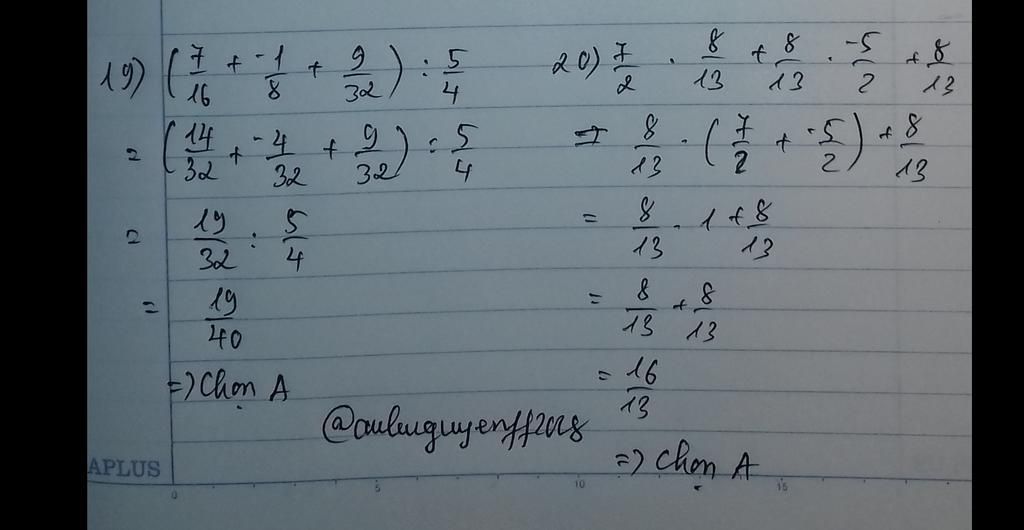 19) (7/16 + -1/8 + 9/32) : 5/4
= (14/32 + -4/32 + 9/32) : 5/4
= 19/32 : 5/4
= 19/40
=> Chọn A
20) 7/2 . 8/13 + 8/13 . -5/2 + 8/13
= 8/13 . (7/2 + -5/2) + 8/13
= 8/13 . 1 + 8/13
= 8/13 + 8/13
= 16/13
=> Chọn A
APLUS
0 5 10 15